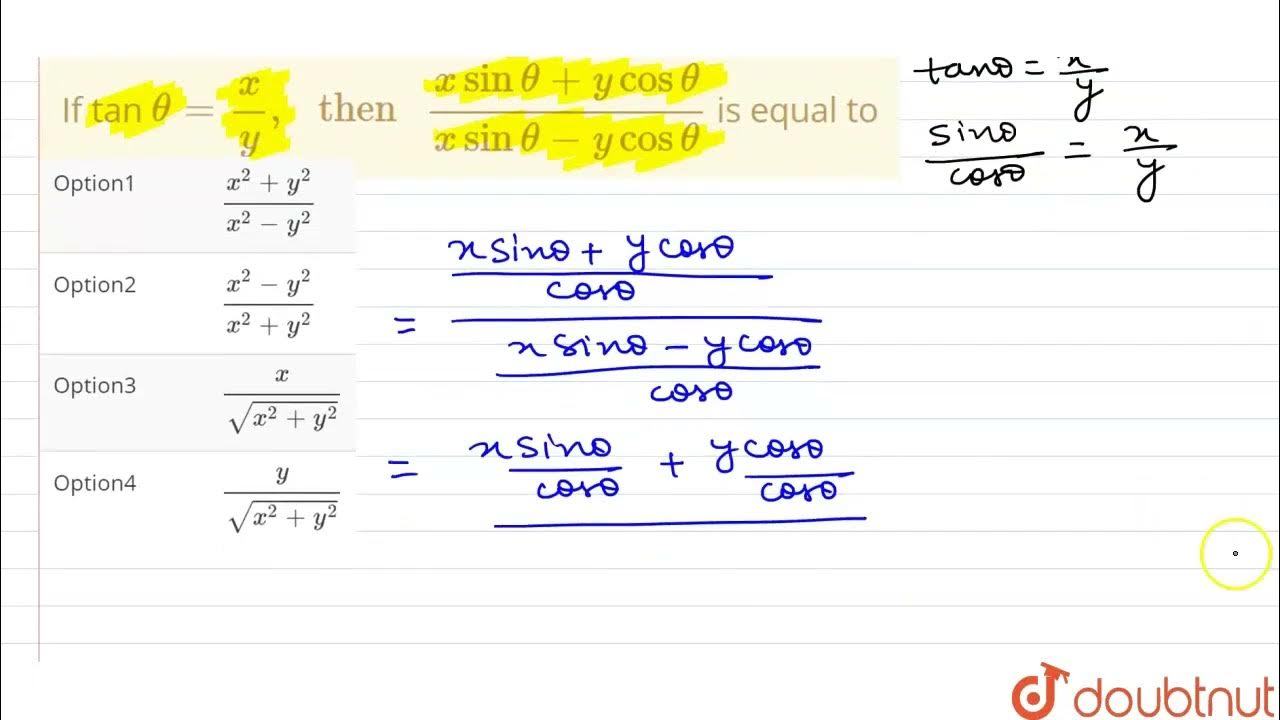 If tan θ = x/y, then (x sin θ + y cos θ)/(x sin θ − y cos θ) is equal to
Option1 (x² + y²)/(x² − y²)
Option2 (x² − y²)/(x² + y²)
Option3 x/√(x² + y²)
Option4 y/√(x² + y²)
tanθ = x/y
sinθ/cosθ = x/y
= ((x sinθ + y cosθ)/cosθ)/((x sinθ − y cosθ)/cosθ)
= x sinθ/cosθ + y cosθ/cosθ
doubtnut